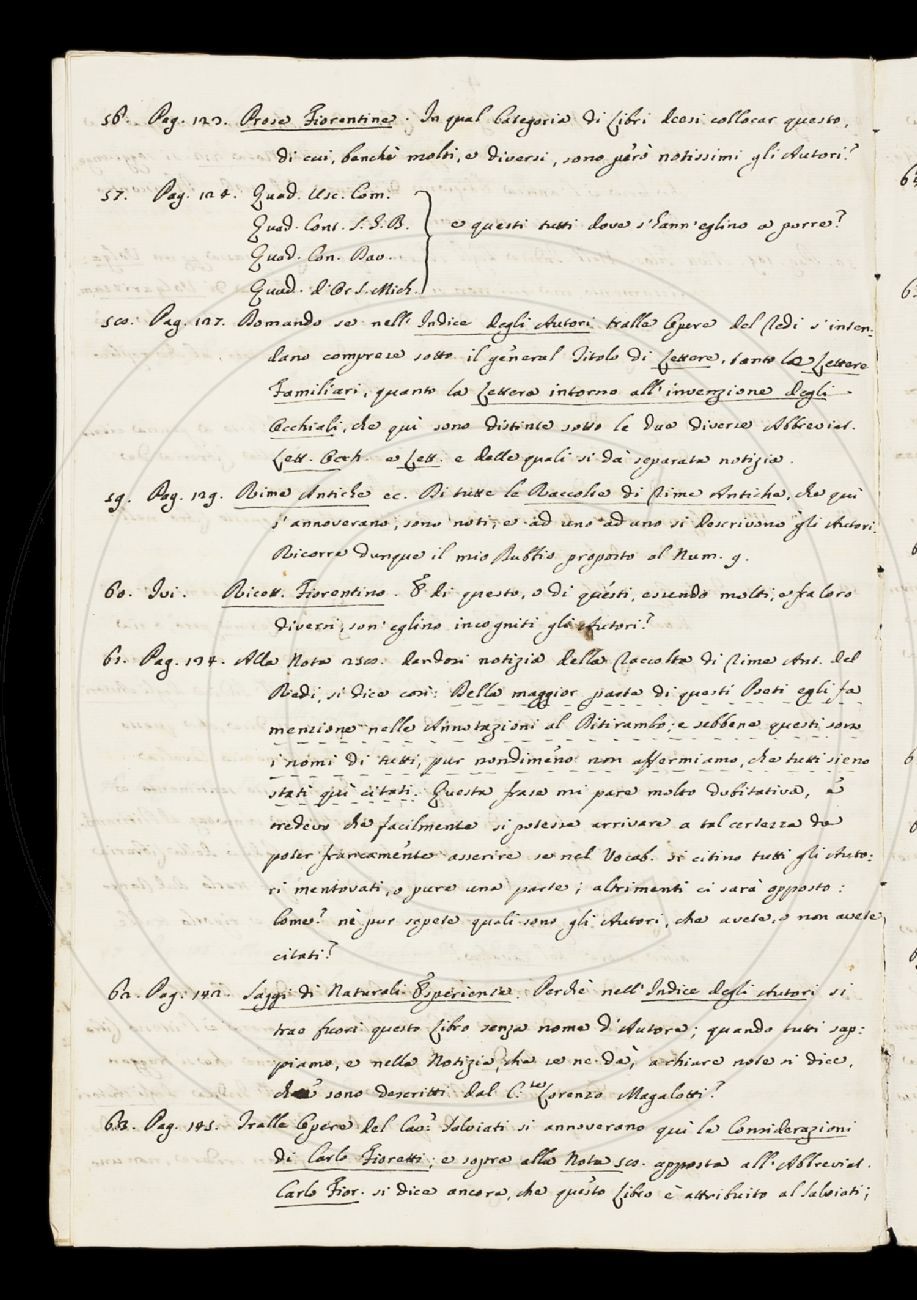 56. Pag. 123. Prose Fiorentine. In qual Categoria di Libri deesi collocar questo,
di cui, benchè molti, e diversi, sono però notissimi gli Autori?
57. Pag. 124. Quad. Usc. Com.
Quad. Cont. S. G. B. e questi tutti dove s'hann'eglino a porre?
Quad. Con. Dav.
Quad. d'Or S. Mich.
58. Pag. 127. Domando se nell'Indice degli Autori tralle Opere del Redi s'inten-
dano comprese sotto il general Titolo di Lettere, tanto le Lettere
Familiari, quanto la Lettera intorno all'invenzione degli
Occhiali, che qui sono distinte sotto le due diverse Abbreviat.
Lett. Occh. e Lett. e delle quali si dà separata notizia.
59. Pag. 129. Rime Antiche ec. Di tutte le Raccolte di Rime Antiche, che qui
s'annoverano, sono noti, e ad uno ad uno si descrivono gli Autori.
Ricorre dunque il mio Dubbio proposto al Num. 9.
60. Ivi. Ricett. Fiorentino. E di questo, o di questi, essendo molti, e fra loro
diversi, son'eglino incogniti gli Autori?
61. Pag. 134. Alla Nota 258. dandosi notizia della Raccolta di Rime Ant. del
Redi, si dice così: Della maggior parte di questi Poeti egli fa
menzione nelle Annotazioni al Ditirambo; e sebbene questi sono
i nomi di tutti, pur nondimeno non affermiamo, che tutti sieno
stati quì citati. Questa frase mi pare molto dubitativa, e
credevo che facilmente si potesse arrivare a tal certezza da
poter francamente asserire se nel Vocab. si citino tutti gli Auto:
ri mentovati, o pure una parte; altrimenti ci sarà opposto:
Come? nè pur sapete quali sono gli Autori, che avete, o non avete
citati?
62. Pag. 142. Saggi di Naturali Esperienze. Perchè nell'Indice degli Autori si
trae fuori questo Libro senza nome d'Autore; quando tutti sap:
piamo, e nella Notizia, che se ne dà, a chiare note si dice,
che sono descritti dal C.te Lorenzo Magalotti?
63. Pag. 145. Tralle Opere del Cav: Salviati si annoverano qui le Considerazioni
di Carlo Fioretti; e sopra alla Nota 58. apposta all'Abbreviat.
Carlo Fior. si dice ancora, che questo Libro è attribuito al Salviati;